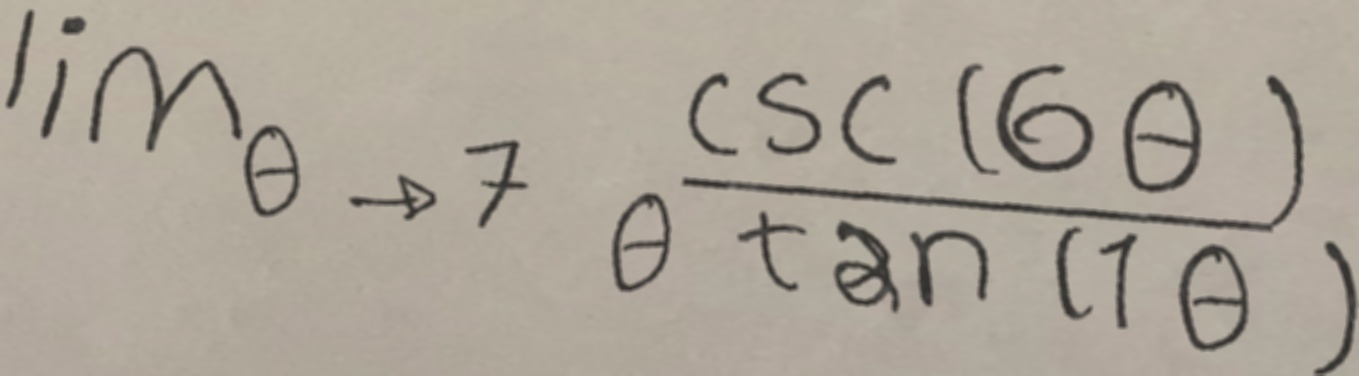 lim θ → 7 csc (6 θ)
θ tan (1 θ)